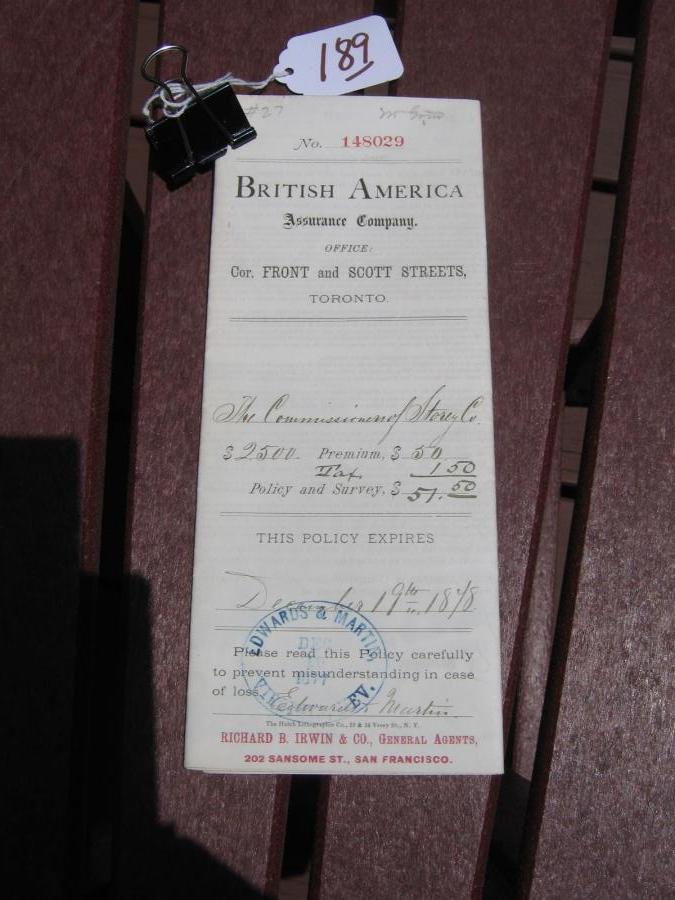 189
#27
No. 148029
BRITISH AMERICA
Assurance Company.
OFFICE:
Cor. FRONT and SCOTT STREETS,
TORONTO.
The Commissioners of Storey Co.
$2500. Premium, $ 50.
Tax 1 50
Policy and Survey, $ 51.50
THIS POLICY EXPIRES
December 19th, 1878
EDWARDS & MARTIN
DEC
1877
EV.
Please read this Policy carefully
to prevent misunderstanding in case
of loss.
Edwards & Martin.
The Hatch Lithographic Co., 32 & 34 Vesey St., N. Y.
RICHARD B. IRWIN & CO., GENERAL AGENTS,
202 SANSOME ST., SAN FRANCISCO.